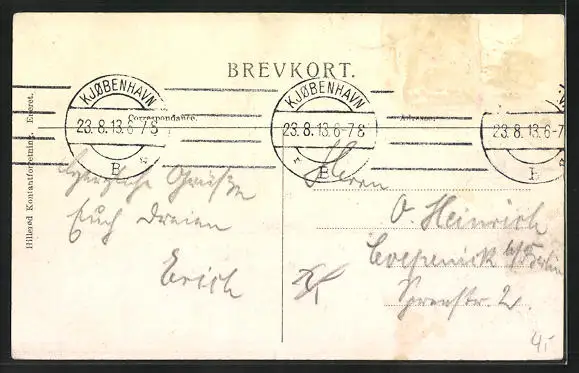 BREVKORT.
KJØBENHAVN
23.8.13.6-7 8
B
KJØBENHAVN
23.8.13.6-7 8
B
23.8.13.6-7
B
Correspondance.
Adresse.
Hillerød Kontantforretning. Eneret.
Herzliche Grüße
Euch Dreien
Erich
Herrn
O. Heinrich
Coepenick b/Berlin
Spreestr. 2.
4,-